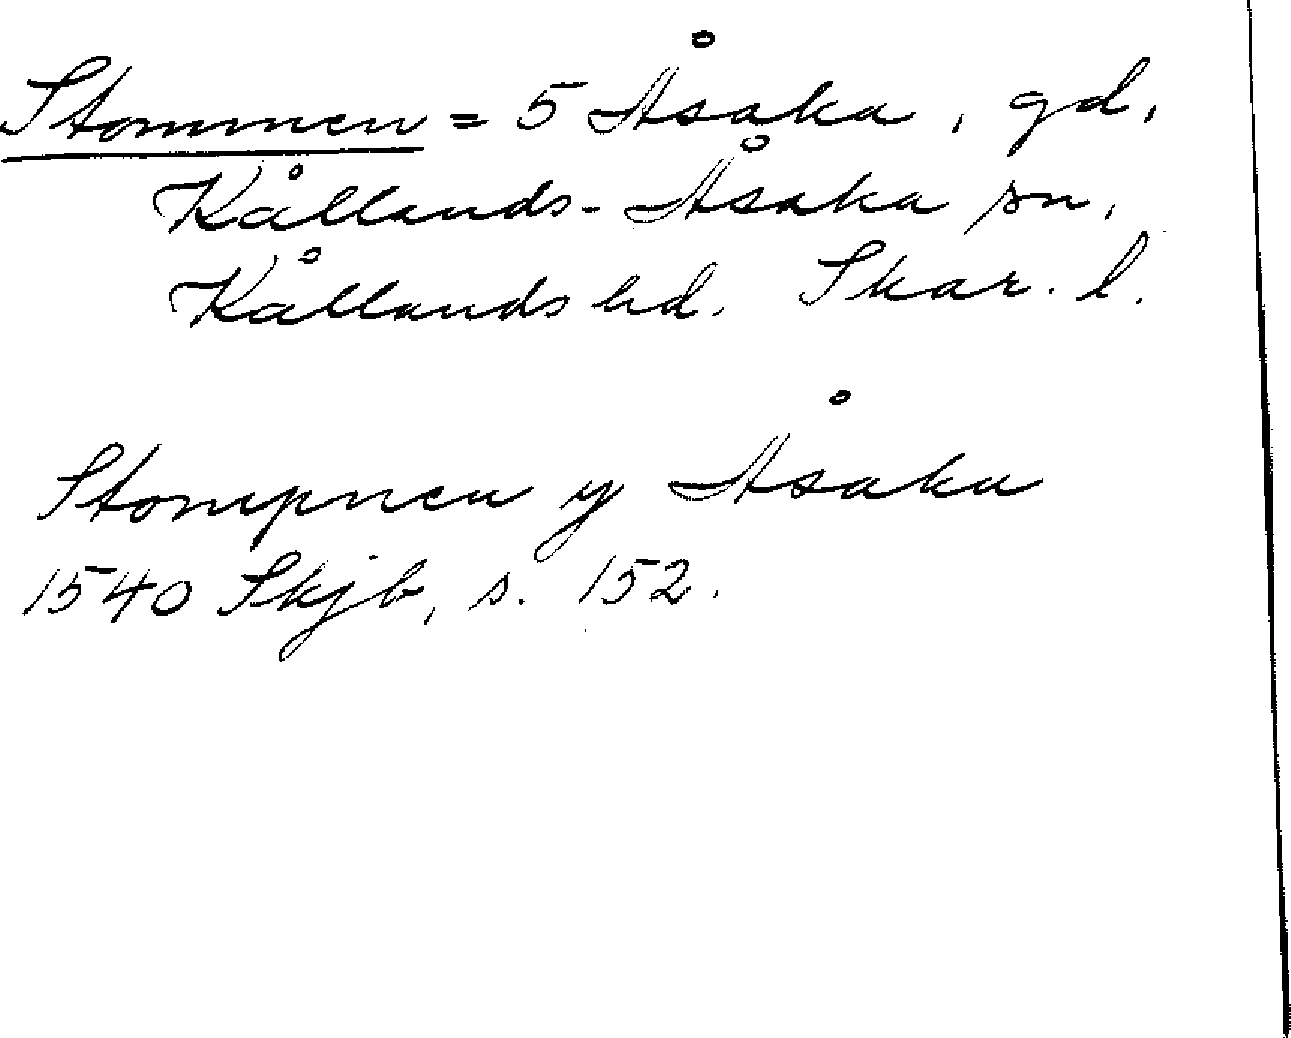 Stommen = 5 Åsaka, gd,
Kållands-Åsaka sn,
Kållands hd. Skar. l.
Stompnen y Åsaka
1540 Skjb, s. 152.